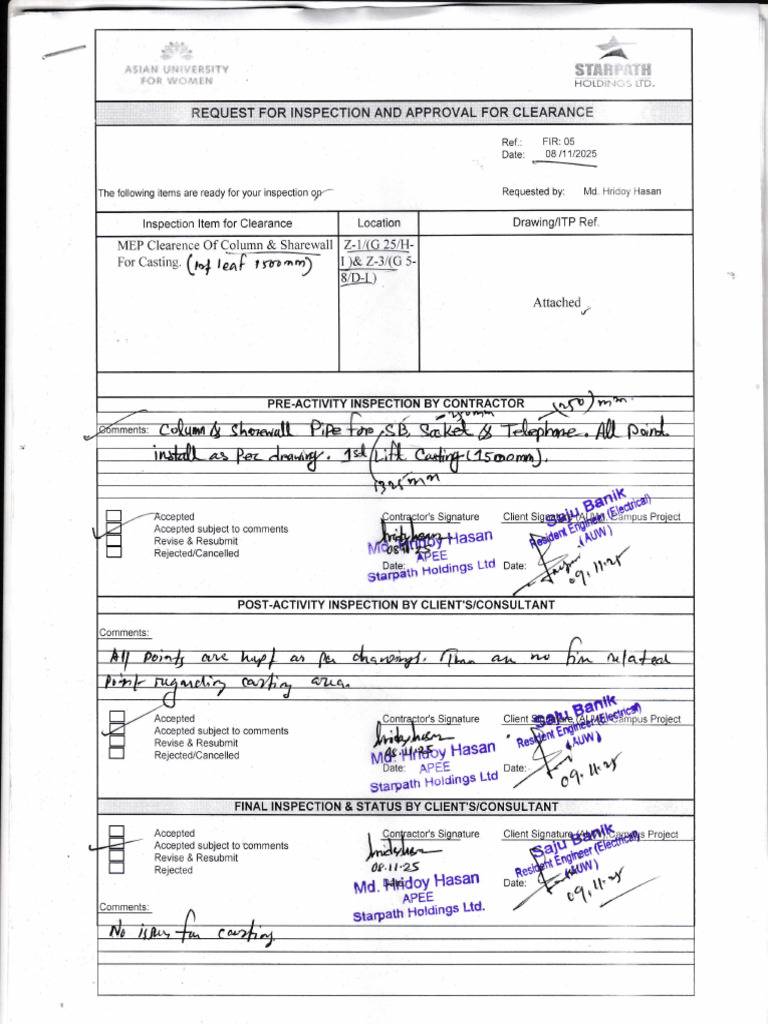 ASIAN UNIVERSITY
FOR WOMEN
STARPATH
HOLDINGS LTD.
REQUEST FOR INSPECTION AND APPROVAL FOR CLEARANCE
Ref.: FIR: 05
Date: 08 /11/2025
The following items are ready for your inspection on
Requested by: Md. Hridoy Hasan
Inspection Item for Clearance Location Drawing/ITP Ref.
MEP Clearence Of Column & Sharewall
For Casting. (1st leaf 1500mm)
Z-1/(G 25/H-
I )& Z-3/(G 5-
8/D-L)
Attached
PRE-ACTIVITY INSPECTION BY CONTRACTOR
250mm (250) mm
Comments: Column & Sharewall Pipe for, SB, Socket & Telephone. All Point
install as Per drawing. 1st Lift Casting (1500mm).
1325 mm
Accepted
Accepted subject to comments
Revise & Resubmit
Rejected/Cancelled
Contractor's Signature
08.11.25
Date:
Md. Hridoy Hasan
APEE
Starpath Holdings Ltd
Client Signature (AUW) Campus Project
Saju Banik
Resident Engineer (Electrical)
(AUW)
Date: 09.11.25
POST-ACTIVITY INSPECTION BY CLIENT'S/CONSULTANT
Comments:
All Points are kept as per drawings. There are no fire related
point regarding casting area.
Accepted
Accepted subject to comments
Revise & Resubmit
Rejected/Cancelled
Contractor's Signature
08.11.25
Md. Hridoy Hasan
Date: APEE
Starpath Holdings Ltd
Client Signature (AUW) Campus Project
Saju Banik
Resident Engineer (Electrical)
(AUW)
Date: 09.11.25
FINAL INSPECTION & STATUS BY CLIENT'S/CONSULTANT
Accepted
Accepted subject to comments
Revise & Resubmit
Rejected
Contractor's Signature
08.11.25
Md. Hridoy Hasan
APEE
Starpath Holdings Ltd.
Client Signature (AUW) Campus Project
Saju Banik
Resident Engineer (Electrical)
(AUW)
Date: 09.11.25
Comments:
No issue for casting.